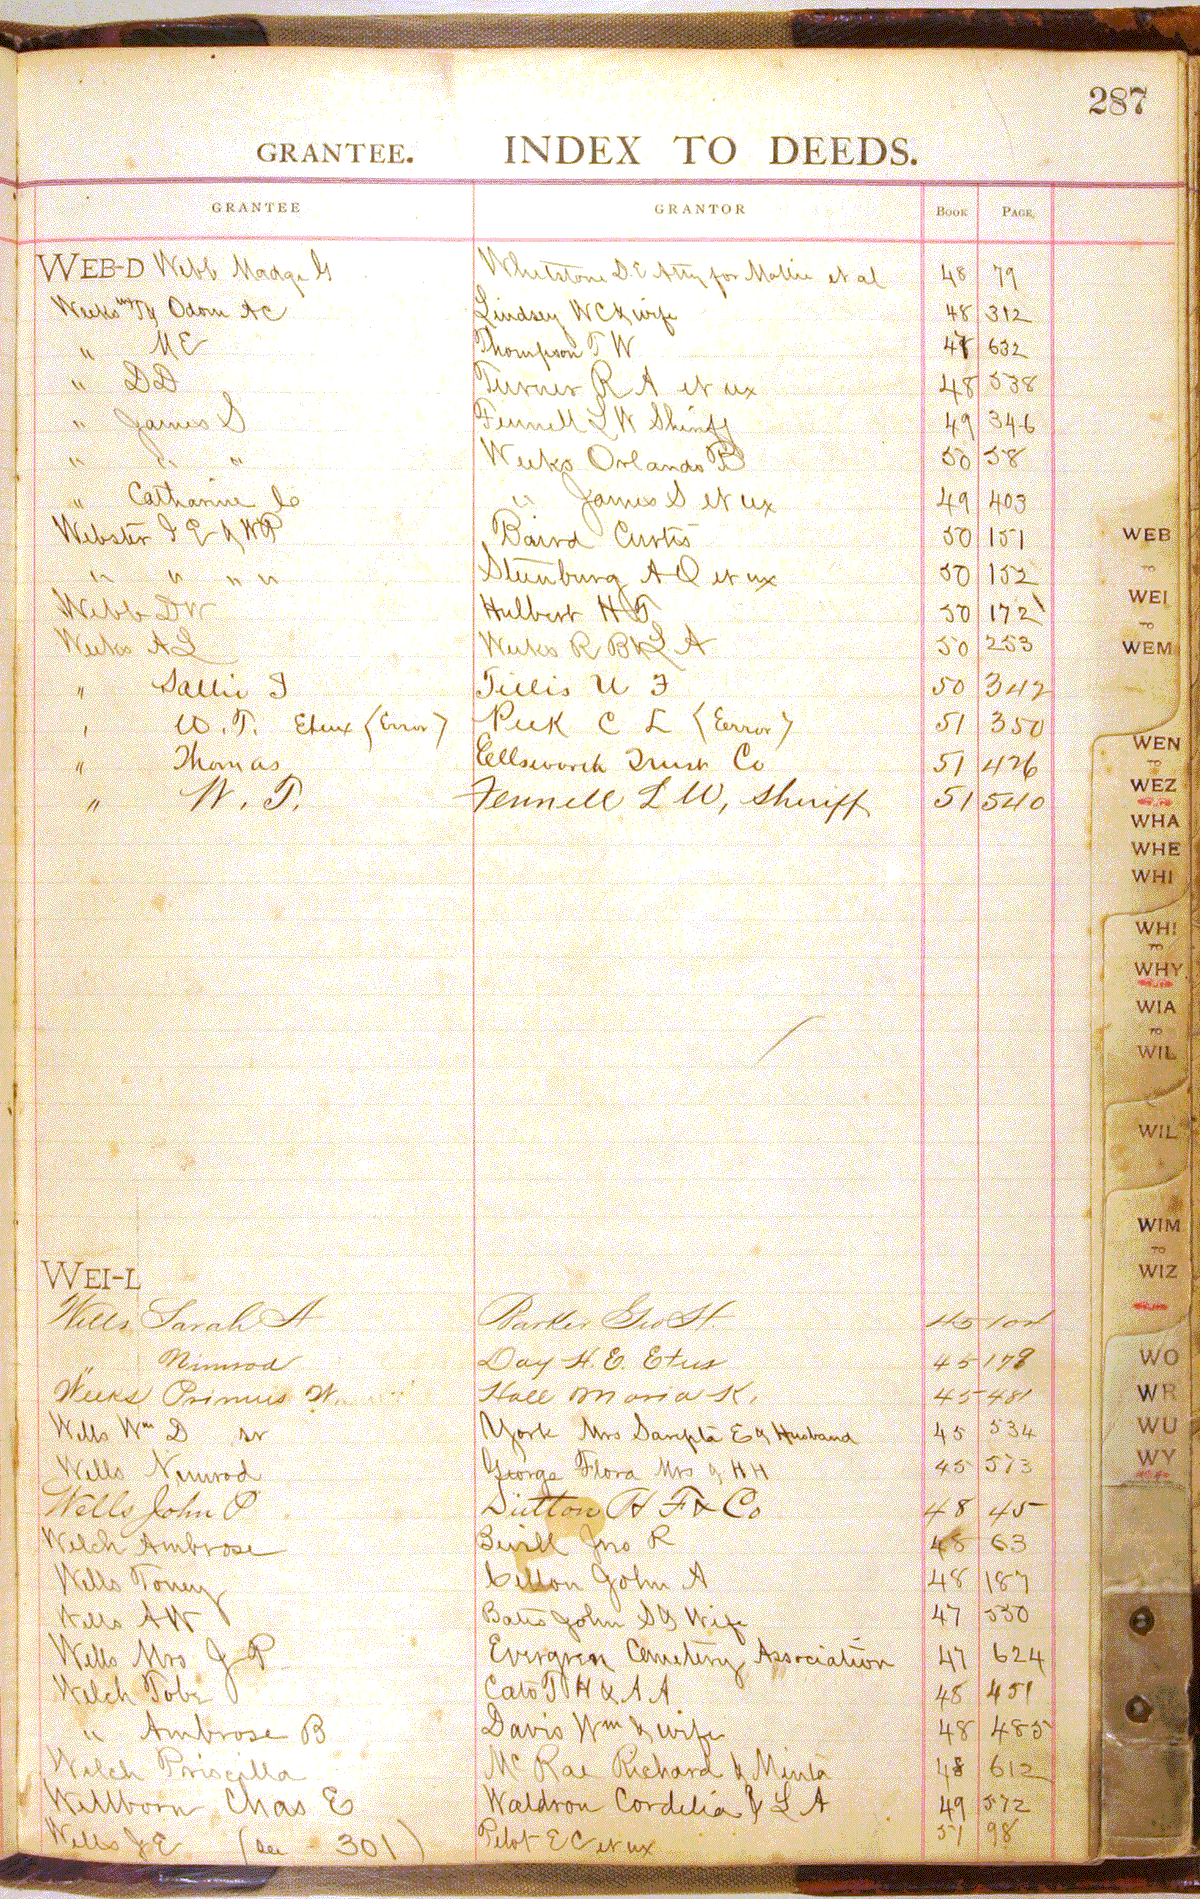 287
GRANTEE. INDEX TO DEEDS.
GRANTEE GRANTOR BOOK PAGE
WEB-D Webb Madge G Whetstone D.E Atty for Mollie et al 48 79
Weeks Odom AC Lindsey W C & wife 48 312
" M E Thompson T W 632
" DD Turner R A et ux 48 538
" James S Fennell L W Sheriff 49 346
" " " Weeks Orlando B 50 58
" Catharine " James S et ux 49 403
Webster & W P Baird Curtis 50 151
" " " " A O et ux 50 152
Webb D W Hulbert H 50 172
Weeks A L Weeks R B & L A 50 253
" Sallie I Tillis U F 50 342
" W. T. Etux (Error) Peek C L (Eerror) 51 350
" Thomas Ellsworth Trust Co 51 426
" W. T. Fennell L W, Sheriff 51 540
WEI-L
Wells Sarah A Parker Geo H 45
" Nimrod Day H. E. Etus 45 178
Weeks Primus Hall Maria K. 45 481
Wells Wm D sr York Mrs E & Husband 45 534
Wells Nimrod George Flora Mrs & H H 45 573
Wells John P Dutton H F & Co 48 45
Welch Ambrose Bevill Jno R 48 63
Wells Toney John A 48 187
Wells AW Bates John S & Wife 47 550
Wells Mrs J P Evergreen Cemetery Association 47 624
Welch Tobe Cato T H & A A 48 451
" Ambrose B Davis Wm & wife 48 485
Welch Priscilla McRae Richard & Minta 48 612
Wellborn Chas E Waldron Cordelia & L A 49 572
Wells J E (See 301) Pelot E C et ux 51 98
WEB
TO
WEI
TO
WEM
WEN
TO
WEZ
WHA
WHE
WHI
WHI
TO
WHY
WIA
TO
WIL
WIL
WIM
TO
WIZ
WO
WR
WU
WY